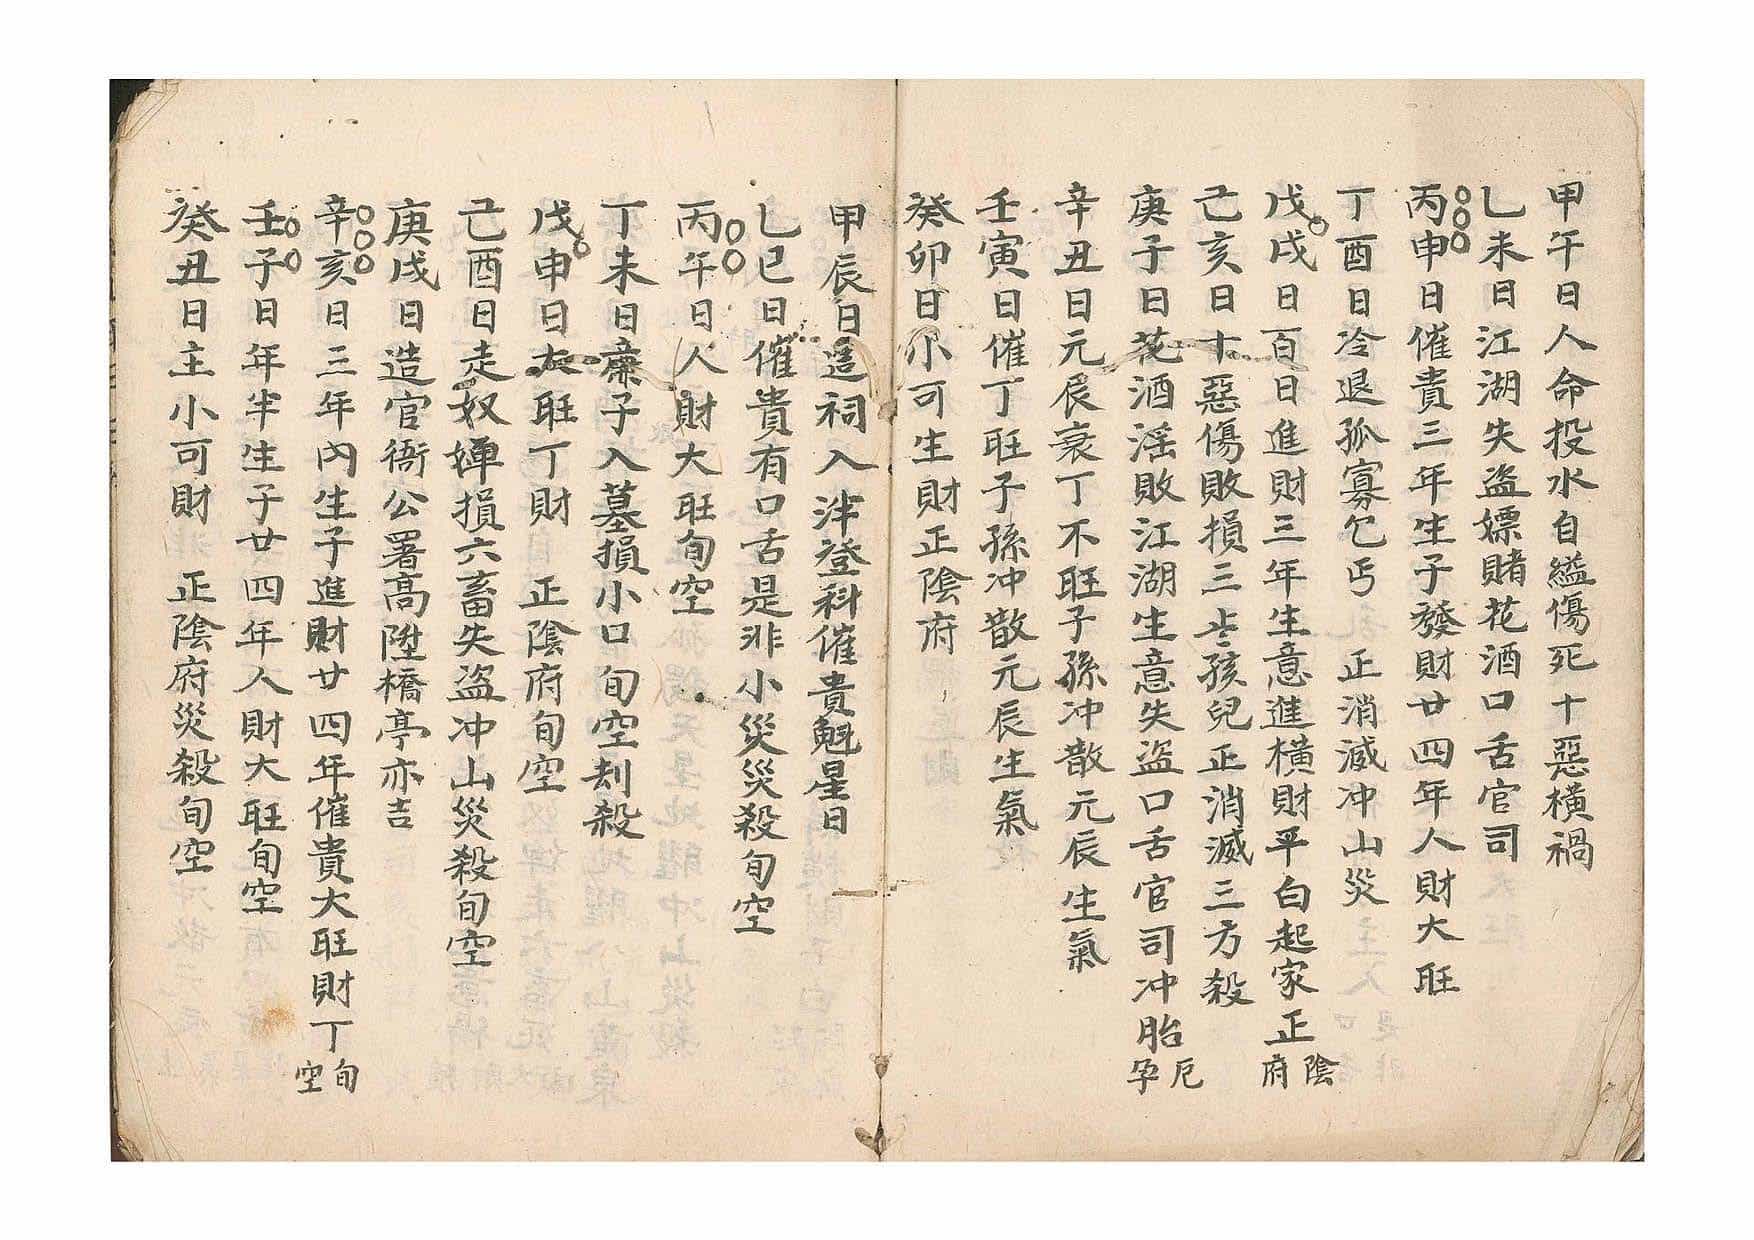 甲午日人命投水自縊傷死十惡橫禍
乚未日江湖失盜嫖賭花酒口舌官司
丙申日催貴三年生子發財廿四年人財大旺
丁酉日冷退孤寡乞丐 正消滅冲山災
戊戌日百日進財三年生意進橫財平白起家正陰府
己亥日十惡傷敗損三歩孩兒正消滅三方殺
庚子日花酒滛敗江湖生意失盜口舌官司冲胎厄孕
辛丑日元辰衰丁不旺子孫冲散元辰生氣
壬寅日催丁旺子孫冲散元辰生氣
癸卯日小可生財正陰府
甲辰日造祠入泮登科催貴魁星日
乚巳日催貴有口舌是非小災災殺旬空
丙午日人財大旺旬空
丁未日廉子入墓損小口 旬空刦殺
戊申日大旺丁財 正陰府旬空
己酉日走奴婢損六畜失盜冲山災殺旬空
庚戌日造官衙公署高陞橋亭亦吉
辛亥日三年內生子進財廿四年催貴大旺財丁旬空
壬子日年半生子廿四年人財大旺旬空
癸丑日主小可財 正陰府災殺旬空